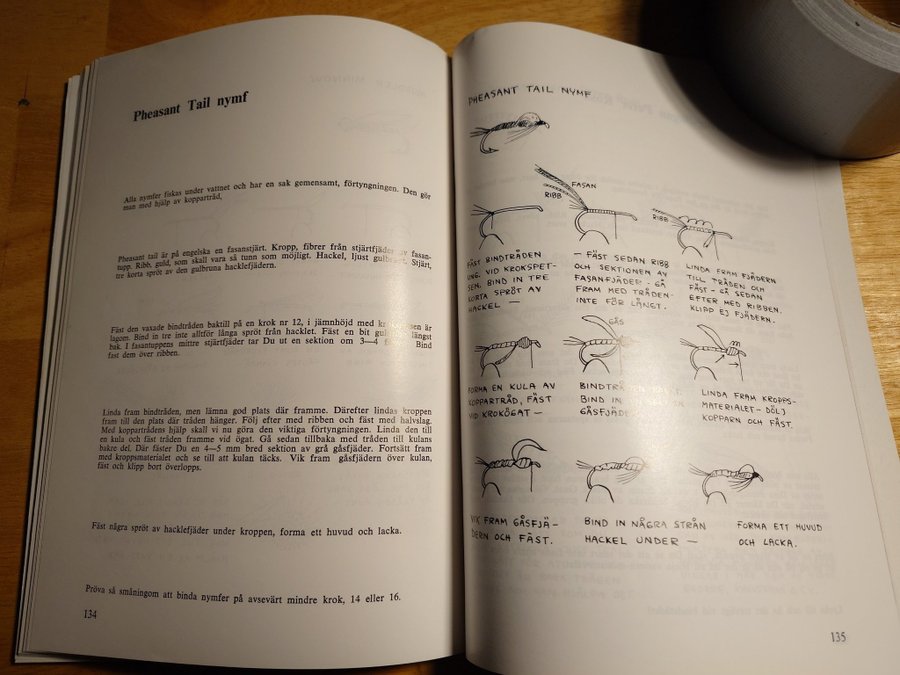 Pheasant Tail nymf
Alla nymfer fiskas under vattnet och har en sak gemensamt, förtyngningen. Den gör
man med hjälp av koppartråd,
Pheasant tail är på engelska en fasanstjärt. Kropp, fibrer från stjärtfjäder av fasan-
tupp. Ribb, guld, som skall vara så tunn som möjligt. Hackel, ljust Stjärt,
tre korta spröt av den gulbruna hacklefjädern.
Fäst den vaxade bindtråden baktill på en krok nr 12, i jämnhöjd med är
lagom. Bind in tre inte alltför långa spröt från hacklet. Fäst en bit längst
bak. I fasantuppens mittre stjärtfjäder tar Du ut en sektion om 3—4 Bind
fast dem över ribben.
Linda fram bindtråden, men lämna god plats där framme. Därefter lindas kroppen
fram till den plats där tråden hänger. Följ efter med ribben och fäst med halvslag.
Med koppartrådens hjälp skall vi nu göra den viktiga förtyngningen. Linda den till
en kula och fäst tråden framme vid ögat. Gå sedan tillbaka med tråden till kulans
bakre del. Där fäster Du en 4—5 mm bred sektion av grå gåsfjäder. Fortsätt fram
med kroppsmaterialet och se till att kulan täcks. Vik fram gåsfjädern över kulan,
fäst och klipp bort överlopps.
Fäst några spröt av hacklefjäder under kroppen, forma ett huvud och lacka.
Pröva så småningom att binda nymfer på avsevärt mindre krok, 14 eller 16.
134
PHEASANT TAIL NYMF
FASAN
RIBB
RIBB
FÄST BINDTRÅDEN
UNG. VID KROKSPET-
SEN. BIND IN TRE
KORTA SPRÖT AV
HACKEL —
— FÄST SEDAN RIBB
OCH SEKTIONEN AV
FASANFJÄDER - GÅ
FRAM MED TRÅDEN-
INTE FÖR LÅNGT.
LINDA FRAM FJÄDERN
TILL TRÅDEN OCH
FÄST - GÅ SEDAN
EFTER MED RIBBEN.
KLIPP EJ FJÄDERN.
GÅS
FORMA EN KULA AV
KOPPARTRÅD, FÄST
VID KROKÖGAT —
BINDTRÅDEN
BIND IN
GÅSFJÄDER
LINDA FRAM KROPPS-
MATERIALET - DÖLJ
KOPPARN OCH FÄST.
VIK FRAM GÅSFJÄ-
DERN OCH FÄST.
BIND IN NÅGRA STRÅN
HACKEL UNDER —
FORMA ETT HUVUD
OCH LACKA.
135